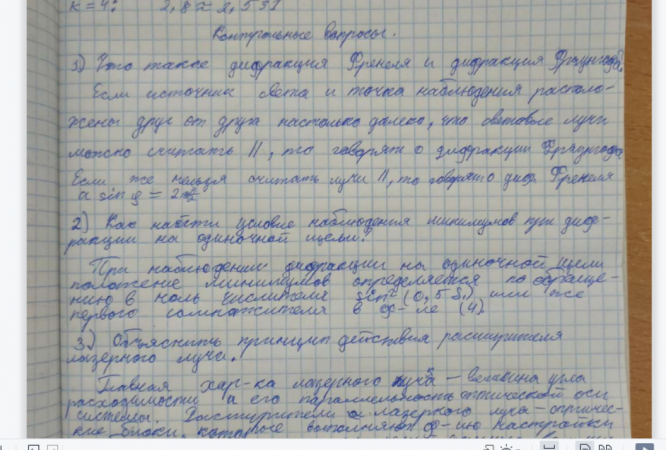 к = 4:
Контрольные вопросы.
1) Что такое дифракция Френеля и дифракция Фраунгофера?
Если источник света и точка наблюдения располо-
жены друг от друга настолько далеко, что световые лучи
можно считать ||, то говорят о дифракции Фраунгофера
Если же нельзя считать лучи ||, то говорят о диф. Френеля
a sin φ = 2
2) Как найти условие наблюдения минимумов при диф-
ракции на одиночной щели?
При наблюдении дифракции на одиночной щели
положение минимумов определяется по обраще-
нию в ноль числителя sin² (0,5 δ) или же
первого сомножителя в ф-ле (4).
3.) Объяснить принцип действия расширителя
лазерного луча.
Главная хар-ка лазерного луча – величина угла
расходимости а его параллельность оптической оси
системы. Расширители лазерного луча – оптичес-
кие блоки, которые выполняют ф-ию настройки